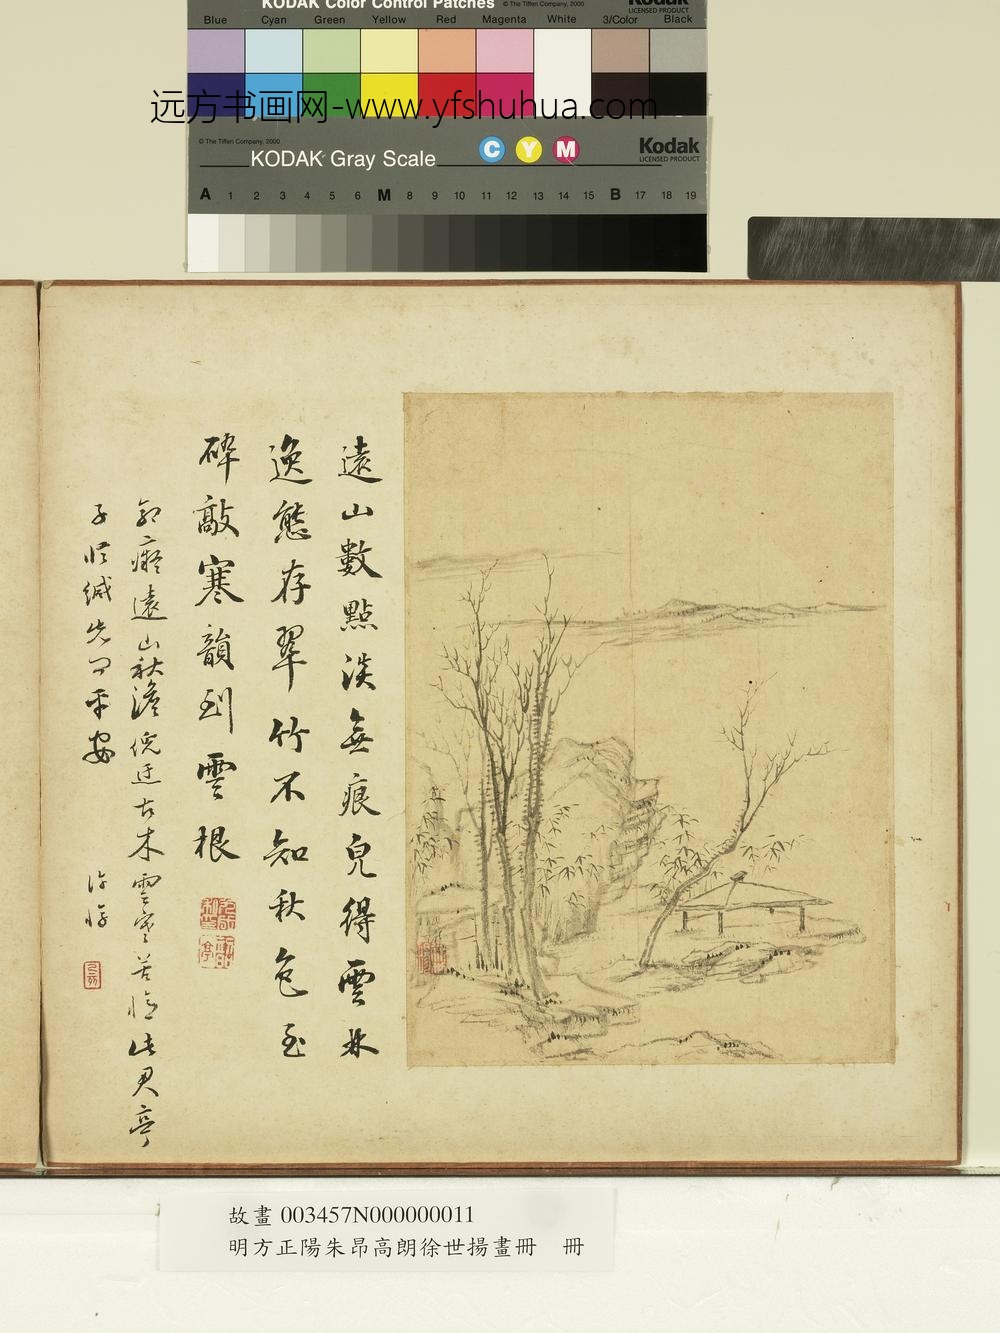 KODAK Color Control Patches © The Tiffen Company, 2000 Kodak
LICENSED PRODUCT
Blue Cyan Green Yellow Red Magenta White 3/Color Black
远方书画网-www.yfshuhua.com
© The Tiffen Company, 2000
KODAK Gray Scale C Y M Kodak
LICENSED PRODUCT
A 1 2 3 4 5 6 M 8 9 10 11 12 13 14 15 B 17 18 19
遠山數點淡無痕皃得雲林
逸態存翠竹不知秋色至
碎敲寒韻到雲根
遠山秋澹倪迂古木雲寒
此君亭
子
先
平安
故畫 003457N000000011
明方正陽朱昂高朗徐世揚畫冊 冊